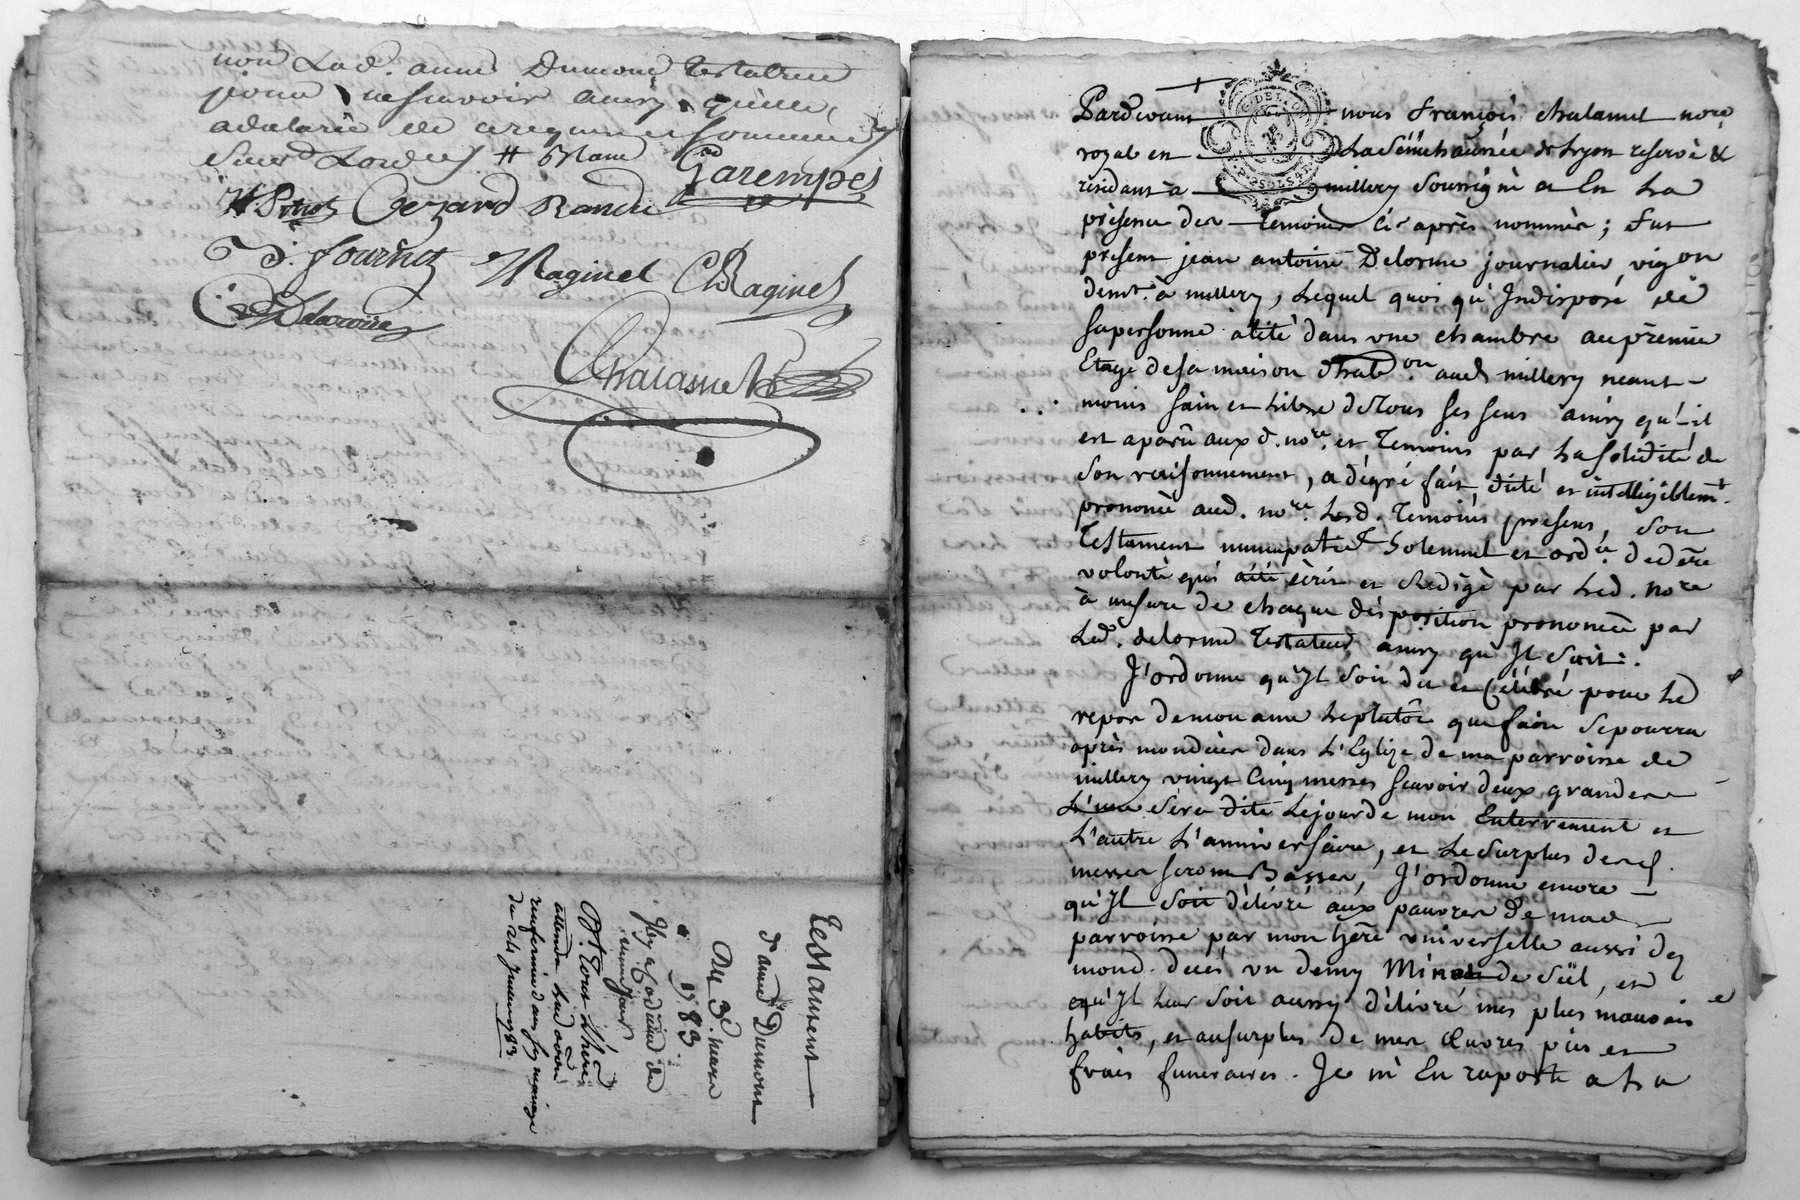 non Lad. anne Dumond testatrice
pour ne sçavoir ainsy qu'elle
a declaré de ce requise et sommée
Garempes
Gerard Randu
D. fournet Raginel C Raginel
Delacroix
Chalamel
Testament
d'anne Dumont
Du 3e mars
1783
Il y a Codicile de
meme jour
du 24 Janvier 83
Pardevant nous françois chalamel nore
royal en La Sénéchaussée de Lyon reservé &
résidant à millery soussigné et En La
présence des témoins Cy après nommés ; fut
présent jean antoine Delorme journalier, vigon
demt. à millery, Lequel quoi qu'Indisposé de
sa personne alité dans une chambre au premier
Etage de sa maison d'habon. aud. millery neant-
moins sain et Libre de tous ses sens ainsy qu'il
est aparu aux d. nore. et Temoins par La solidité de
son raisonnement, a dégré fait, dicté et intelligiblemt.
prononcé aud. nore. Lesd. Temoins présens, son
Testament nuncupatif solemnel et ordre. de dere
volonté qui a été écrit et Redigé par Led. nore
à mesure de chaque disposition prononcée par
Led. delorme Testateur, ainsy qu'Il suit.
J'ordonne qu'Il soit dit et Célébré pour Le
repos de mon ame Le plutôt que faire se pourra
après mon décès dans L'Eglize de ma parroisse de
millery vingt Cinq messes scavoir deux grandes
L'une sera dite Le jour de mon Enterrement et
L'autre L'anniversaire, et Le surplus desd.
messes seront Basses, J'ordonne encore
qu'Il soit délivré aux pauvres de mad
parroisse par mon here universelle aussi dez
mond. decés un demy Minot de sel, et
qu'Il Leur soit aussy délivré mes plus mauvais
habits, et au surplus de mes Œuvres pies et
frais funeraires. Je m'En raporte a La